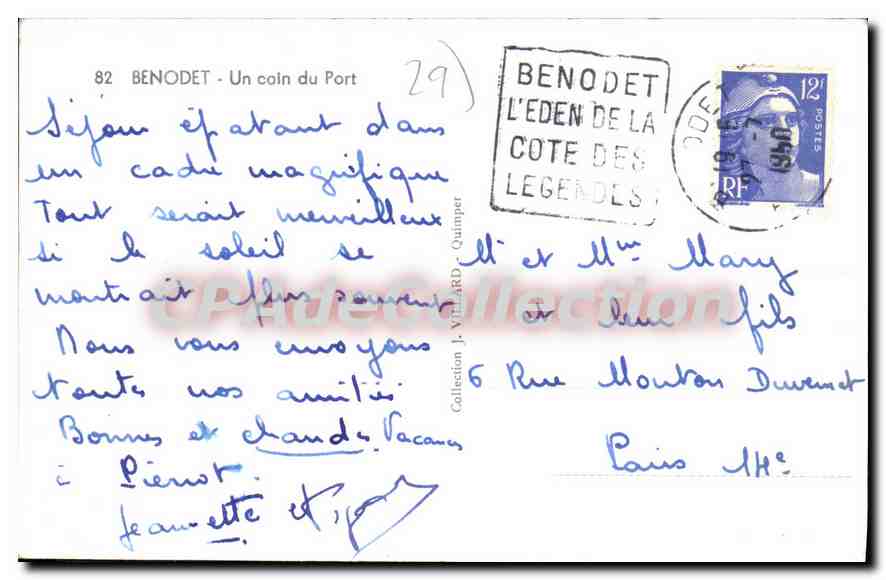 82 BENODET - Un coin du Port
29)
Séjour épatant dans
un cadre magnifique
Tout serait merveilleux
si le soleil se
montrait plus souvent
Nous vous envoyons
toutes nos amitiés
Bonnes et chaudes Vacances
à Pierrot.
Jeannette et
Collection J. VILLARD - Quimper
BENODET
L'EDEN DE LA
COTE DES
LEGENDES
ODET
19
27 -7
1950
12F
POSTES
RF
Mr et Mme Mary
et leur fils
6 Rue Mouton Duvernet
Paris 14e
CPADeCollection